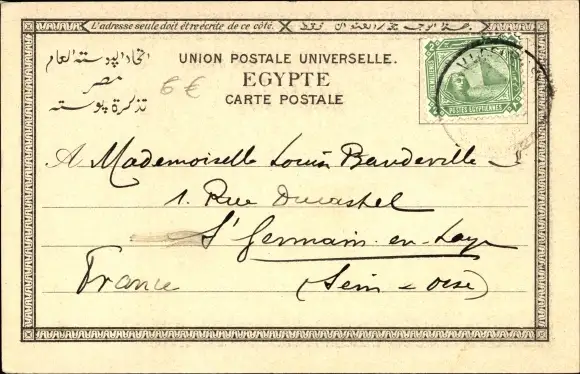 L'adresse seule doit être écrite de ce côté.
UNION POSTALE UNIVERSELLE.
اتحاد البوسته العام
EGYPTE
مصر
6 €
CARTE POSTALE
تذكرة بوسته
POSTES EGYPTIENNES
A Mademoiselle Louise Baudeville
1. Rue
St Germain-en-Laye
France
(Seine-Oise)